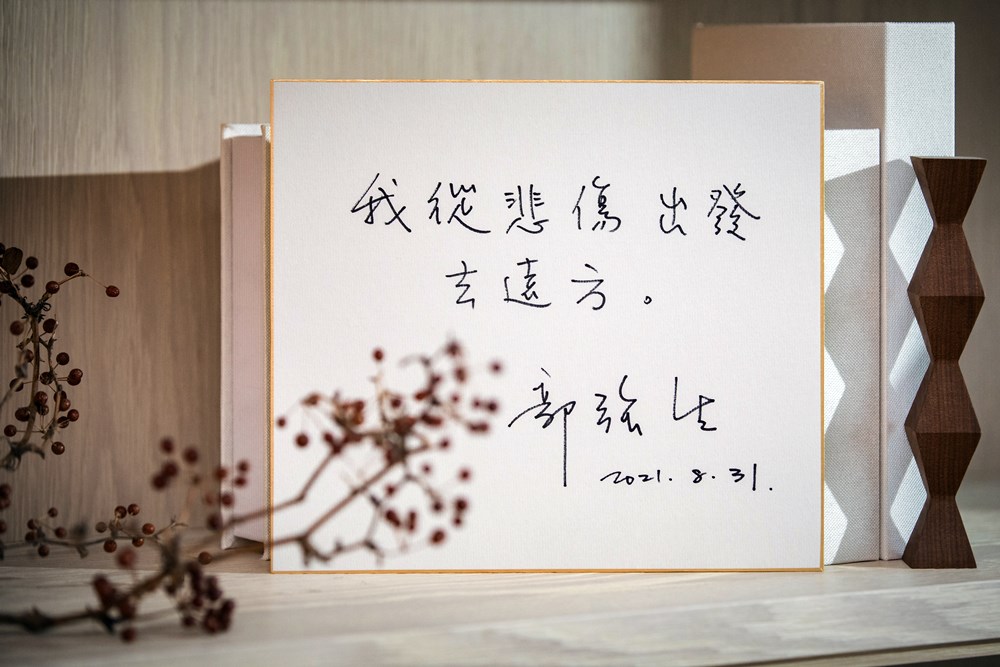 我從悲傷出發
去遠方。
郭強生
2021.8.31.